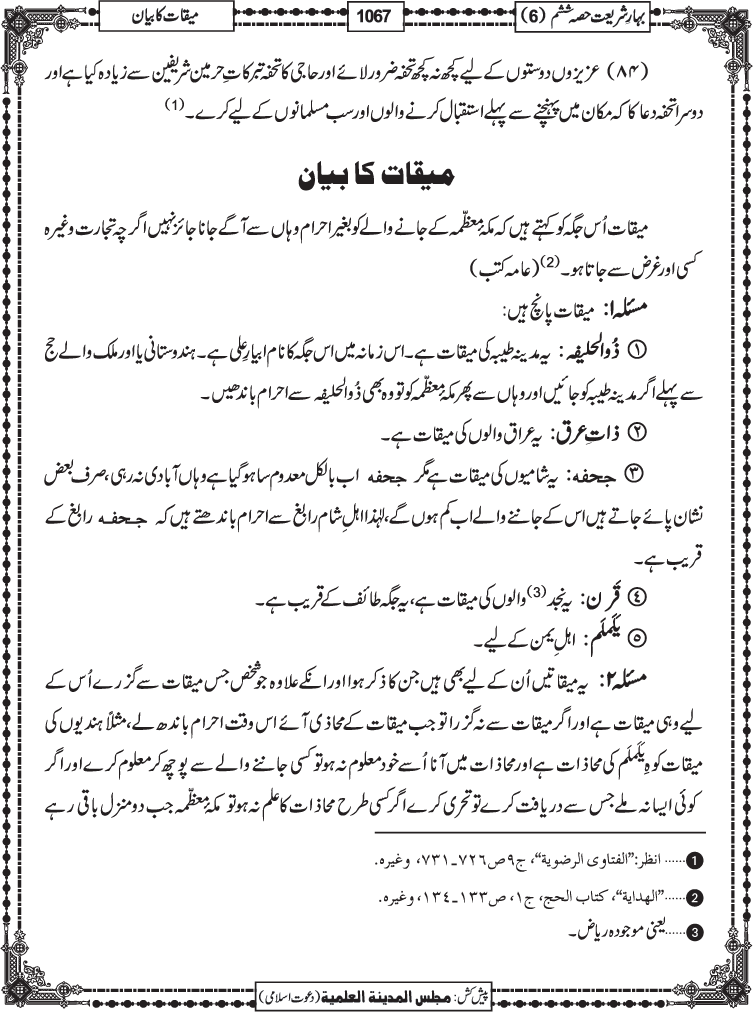 بہارِ شریعت حصہ ششم (6)
1067
میقات کا بیان
(۸۴) عزیزوں دوستوں کے لیے کچھ نہ کچھ تحفہ ضرور لائے اور حاجی کا تحفہ تبرکاتِ حرمین شریفین سے زیادہ کیا ہے اور
دوسرا تحفہ دعا کا کہ مکان میں پہنچنے سے پہلے استقبال کرنے والوں اور سب مسلمانوں کے لیے کرے۔ (1)
میقات کا بیان
میقات اُس جگہ کو کہتے ہیں کہ مکۂ معظّمہ کے جانے والے کو بغیر احرام وہاں سے آگے جانا جائز نہیں اگرچہ تجارت وغیرہ
کسی اور غرض سے جاتا ہو۔ (2) (عامہ کتب)
مسئلہ ۱: میقات پانچ ہیں:
① ذُوالحلیفہ: یہ مدینہ طیبہ کی میقات ہے۔ اس زمانہ میں اس جگہ کا نام ابیارِ علی ہے۔ ہندوستانی یا اور ملک والے حج
سے پہلے اگر مدینہ طیبہ کو جائیں اور وہاں سے پھر مکۂ معظّمہ کو تو وہ بھی ذُوالحلیفہ سے احرام باندھیں۔
② ذاتِ عرق: یہ عراق والوں کی میقات ہے۔
③ جحفہ: یہ شامیوں کی میقات ہے مگر جحفہ اب بالکل معدوم سا ہو گیا ہے وہاں آبادی نہ رہی، صرف بعض
نشان پائے جاتے ہیں اس کے جاننے والے اب کم ہوں گے، لہٰذا اہلِ شام رابغ سے احرام باندھتے ہیں کہ جحفہ رابغ کے
قریب ہے۔
④ قَرن: یہ نجد (3) والوں کی میقات ہے، یہ جگہ طائف کے قریب ہے۔
⑤ یَلَملَم: اہلِ یمن کے لیے۔
مسئلہ ۲: یہ میقاتیں اُن کے لیے بھی ہیں جن کا ذکر ہوا اور انکے علاوہ جو شخص جس میقات سے گزرے اُس کے
لیے وہی میقات ہے اور اگر میقات سے نہ گزرا تو جب میقات کے محاذی آئے اس وقت احرام باندھ لے، مثلاً ہندیوں کی
میقات کوہِ یَلَملَم کی محاذات ہے اور محاذات میں آنا اُسے خود معلوم نہ ہو تو کسی جاننے والے سے پوچھ کر معلوم کرے اور اگر
کوئی ایسا نہ ملے جس سے دریافت کرے تو تحری کرے اگر کسی طرح محاذات کا علم نہ ہو تو مکۂ معظّمہ جب دو منزل باقی رہے
1...... انظر: "الفتاوی الرضوية"، ج۹ ص۷۲٦ـ۷۳۱، وغیرہ.
2...... "الهداية"، کتاب الحج، ج۱، ص۱۳۳ـ۱۳٤، وغیرہ.
3...... یعنی موجودہ ریاض۔
پیش کش: مجلس المدينة العلمية (دعوتِ اسلامی)